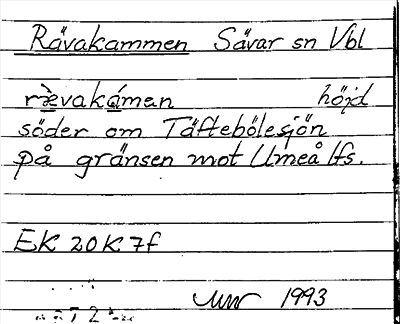 Rävakammen Sävar sn Vbl
rævakáman höjd
söder om Täftebölesjön
på gränsen mot Umeå lfs.
EK 20K 7f
1993